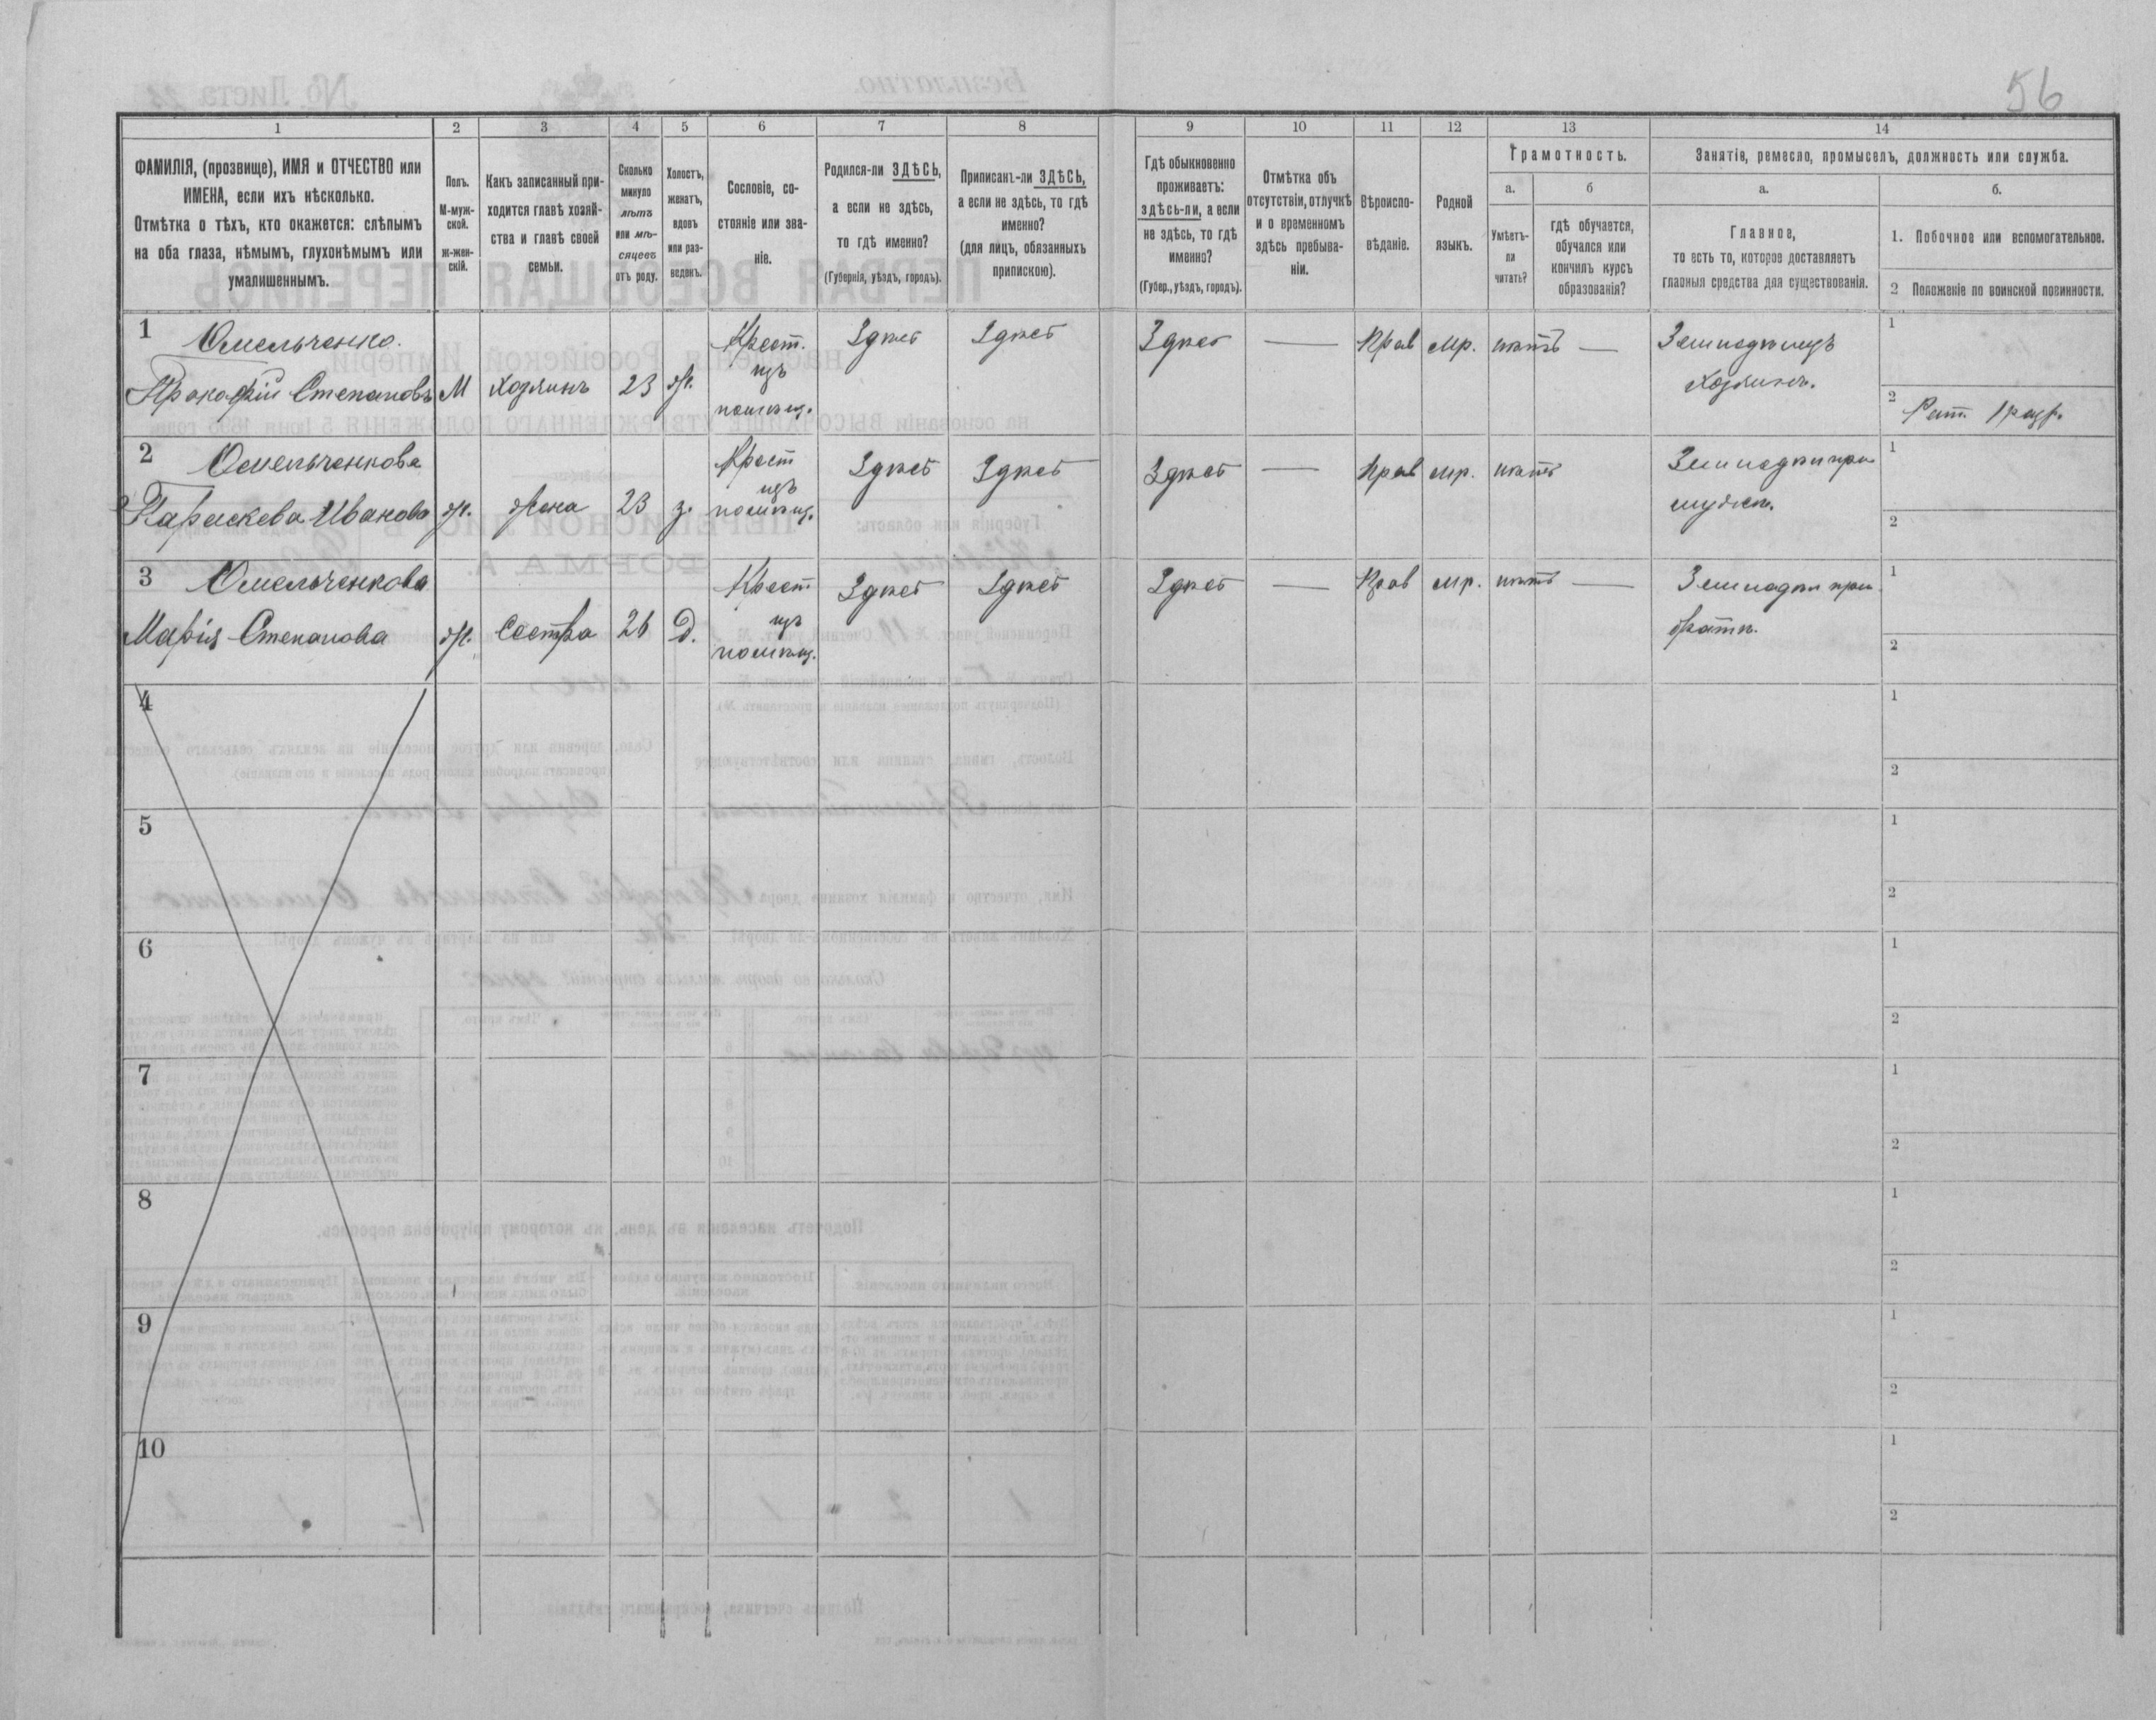 56
1
2
3
4
5
6
7
8
9
10
11
12
13
14
ФАМИЛІЯ, (прозвище), ИМЯ и ОТЧЕСТВО или
ИМЕНА, если ихъ нѣсколько.
Отмѣтка о тѣхъ, кто окажется: слѣпымъ
на оба глаза, нѣмымъ, глухонѣмымъ или
умалишеннымъ.
Полъ.
М-муж-
ской.
ж-жен-
скій.
Какъ записанный при-
ходится главѣ хозяй-
ства и главѣ своей
семьи.
Сколько
минуло
лѣтъ
или мѣ-
сяцевъ
отъ роду.
Холостъ,
женатъ,
вдовъ
или раз-
веденъ.
Сословіе, со-
стояніе или зва-
ніе.
Родился-ли ЗДѢСЬ,
а если не здѣсь,
то гдѣ именно?
(Губернія, уѣздъ, городъ).
Приписанъ-ли ЗДѢСЬ,
а если не здѣсь, то гдѣ
именно?
(для лицъ, обязанныхъ
припискою).
Гдѣ обыкновенно
проживаетъ:
здѣсь-ли, а если
не здѣсь, то гдѣ
именно?
(Губер., уѣздъ, городъ).
Отмѣтка объ
отсутствіи, отлучкѣ
и о временномъ
здѣсь пребыва-
ніи.
Вѣроиспо-
вѣданіе.
Родной
языкъ.
Грамотность.
а.
б
Умѣетъ-
ли
читать?
гдѣ обучается,
обучался или
кончилъ курсъ
образованія?
Занятіе, ремесло, промыселъ, должность или служба.
а.
б.
Главное,
то есть то, которое доставляетъ
главныя средства для существованія.
1. Побочное или вспомогательное.
2 Положеніе по воинской повинности.
1 Омельченко.
Прокофій Степановъ
М
Хозяинъ
23
ж.
Крест.
изъ
помѣщ.
Здѣсь
Здѣсь
Здѣсь
Прав
мр.
нѣтъ
Хозяинъ.
1
2 Рат. 1 разр.
2 Омельченкова
Параскева Иванова
ж.
Жена
23
з.
Крест
изъ
помѣщ.
Здѣсь
Здѣсь
Здѣсь
Прав
мр.
нѣтъ
мужѣ.
1
2
3 Омельченкова
Марія Степанова
ж.
Сестра
26
Д.
Крест
изъ
помѣщ.
Здѣсь
Здѣсь
Здѣсь
Прав
мр.
нѣтъ
братѣ.
1
2
4
1
2
5
1
2
6
1
2
7
1
2
8
1
2
9
1
2
10
1
2